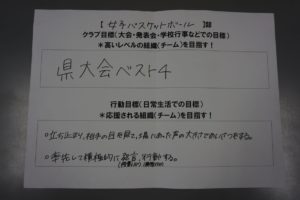 【女子バスケットボール】部
クラブ目標(大会・発表会・学校行事などでの目標)
＊高いレベルの組織(チーム)を目指す！
県大会ベスト4
行動目標(日常生活での目標)
＊応援される組織(チーム)を目指す！
○立ち止まり、相手の目を見て、場にあった声の大きさであいさつをする。
○率先して積極的に発言、行動する。